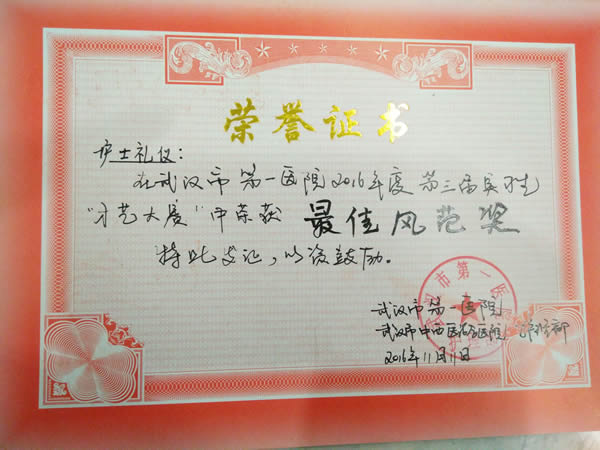 荣誉证书
护士礼仪：
在武汉市第一医院2016年度第三届实习生
“才艺大展”中荣获 最佳风范奖
特此发证，以资鼓励。
武汉市第一医院
武汉市中西医结合医院
2016年11月11日
市第一医